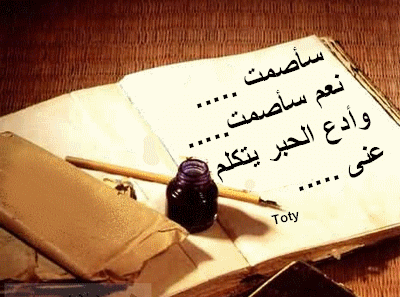 سأصمت .....
نعم سأصمت.....
وأدع الحبر يتكلم
عنى .....
Toty